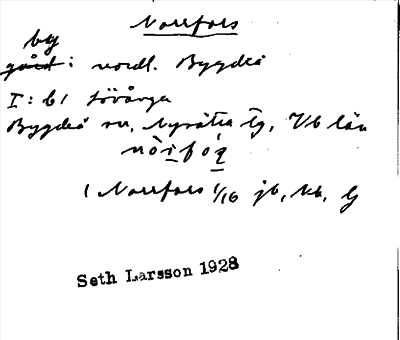 Norrfors
by
gård: nordl. Bygdeå
I: b1 
Bygdeå sn, Nysätra tg, Vb län
1 Norrfors 1/16 jb, kb, G
Seth Larsson 1928